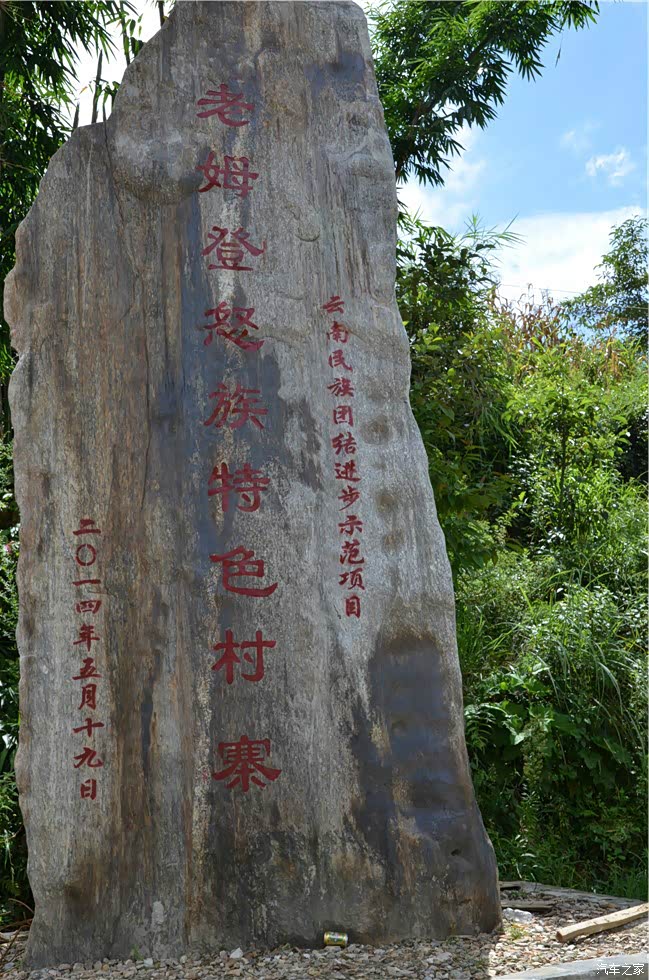 云南民族团结进步示范项目
老姆登怒族特色村寨
二〇一四年五月十九日
汽车之家